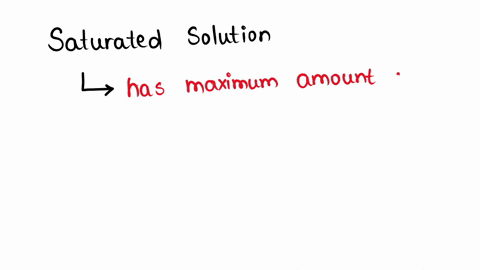 Saturated Solution
has maximum amount